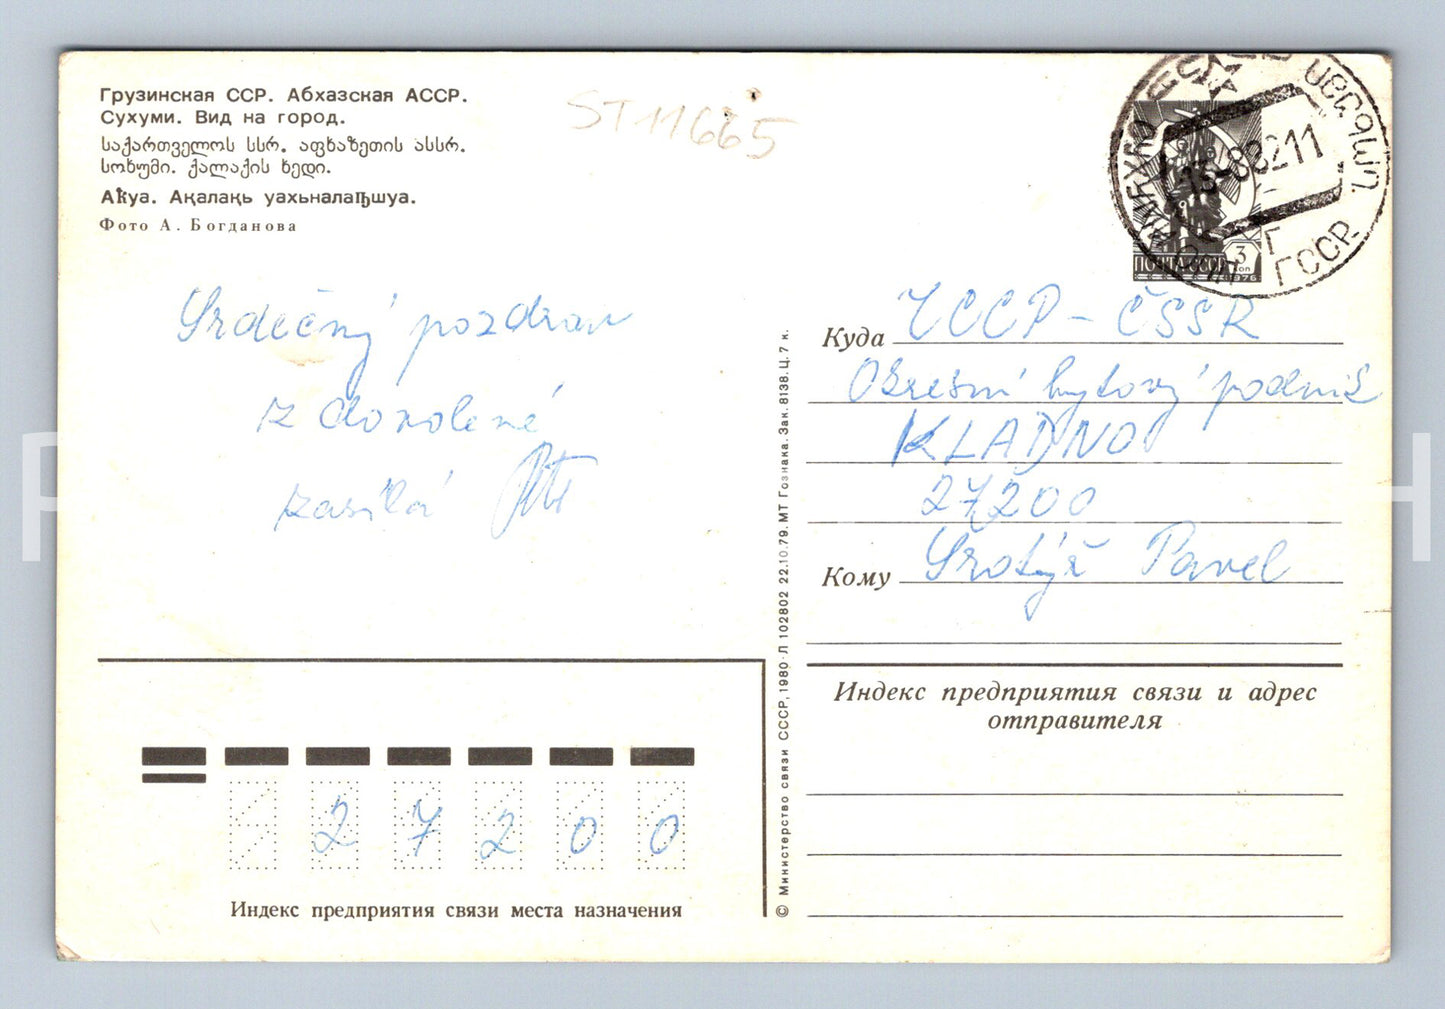 Грузинская ССР. Абхазская АССР.
Сухуми. Вид на город.
საქართველოს სსრ. აფხაზეთის ასსრ.
სოხუმი. ქალაქის ხედი.
Аҟуа. Ақалақь уахьналаԥшуа.
Фото А. Богданова
ST11665
ПОЧТА СССР
3
коп
1976
ГССР.
13-88211
Srdečný pozdrav
z dovolené
zasílá
Куда ЧССР - ČSSR
Okresní bytový podnik
KLADNO
27200
Кому Srotýř Pavel
Индекс предприятия связи и адрес
отправителя
27200
Индекс предприятия связи места назначения
© Министерство связи СССР, 1980. Л 102802 22.10.79. МТ Гознака. Зак. 8138. Ц. 7 к.